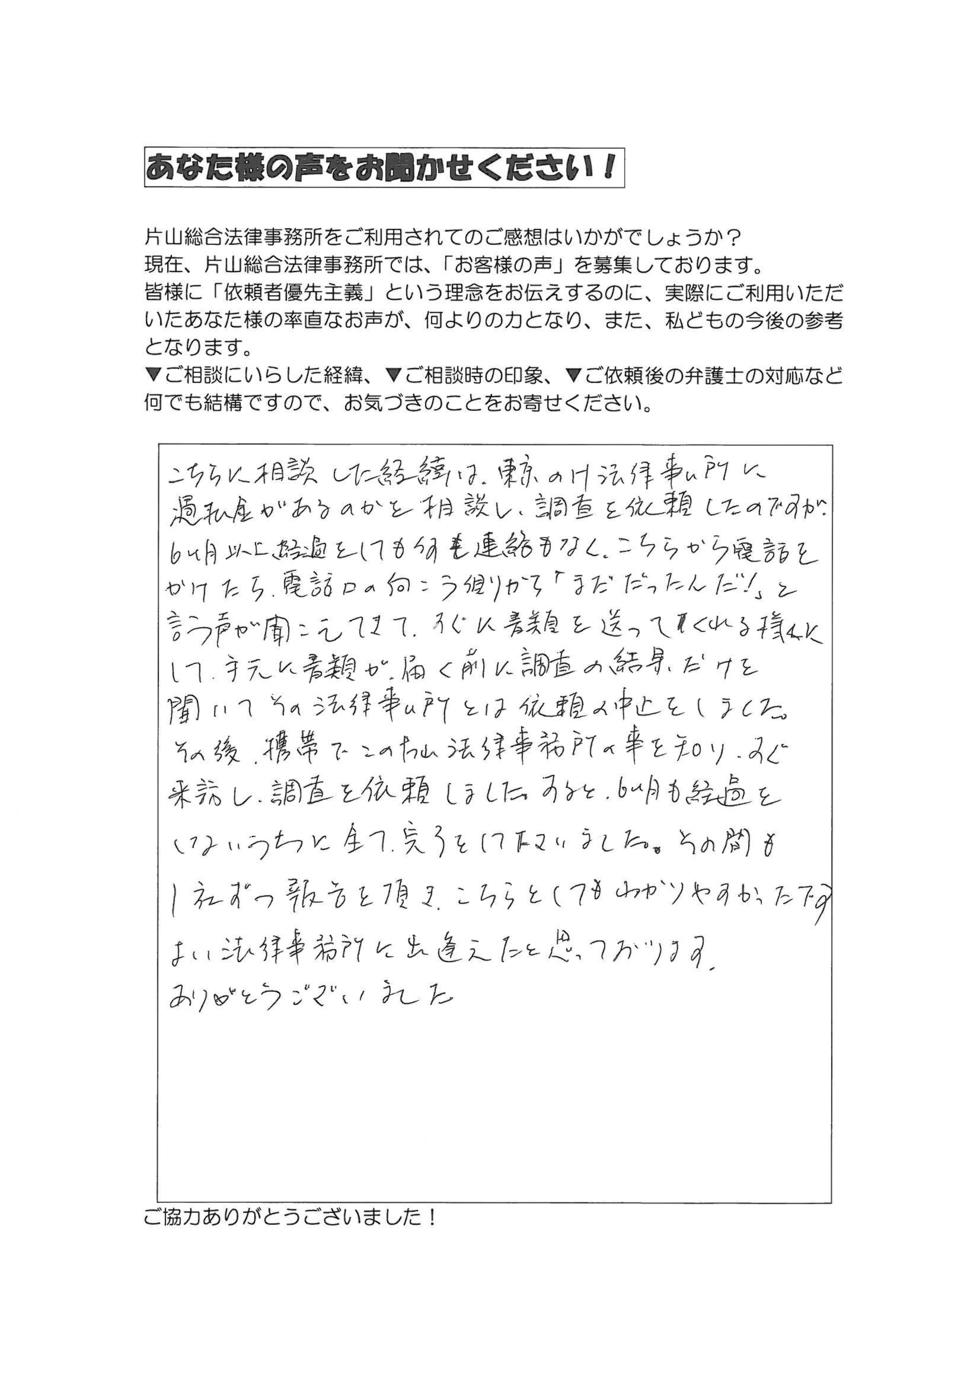 あなた様の声をお聞かせください！
片山総合法律事務所をご利用されてのご感想はいかがでしょうか？
現在、片山総合法律事務所では、「お客様の声」を募集しております。
皆様に「依頼者優先主義」という理念をお伝えするのに、実際にご利用いただ
いたあなた様の率直なお声が、何よりの力となり、また、私どもの今後の参考
となります。
▼ご相談にいらした経緯、▼ご相談時の印象、▼ご依頼後の弁護士の対応など
何でも結構ですので、お気づきのことをお寄せください。
こちらに相談した経緯は、東京のH法律事ム所に
過払金があるのかを相談し、調査を依頼したのですが、
6ヶ月以上経過をしても何も連絡もなく、こちらから電話を
かけたら、電話口の向こう側から「まだだったんだ!」と
言う声が聞こえてきて、すぐに書類を送ってくれる様に
して、手元に書類が届く前に調査の結果だけを
聞いてその法律事ム所とは依頼の中止をしました。
その後、携帯でこの片山法律事務所の事を知り、すぐ
来訪し、調査を依頼しました。すると、6ヶ月も経過を
しないうちに全て、完了をして下さいました。その間も
1社ずつ報告を頂き、こちらとしてもわかりやすかったです
よい法律事務所に出逢えたと思っております。
ありがとうございました
ご協力ありがとうございました！